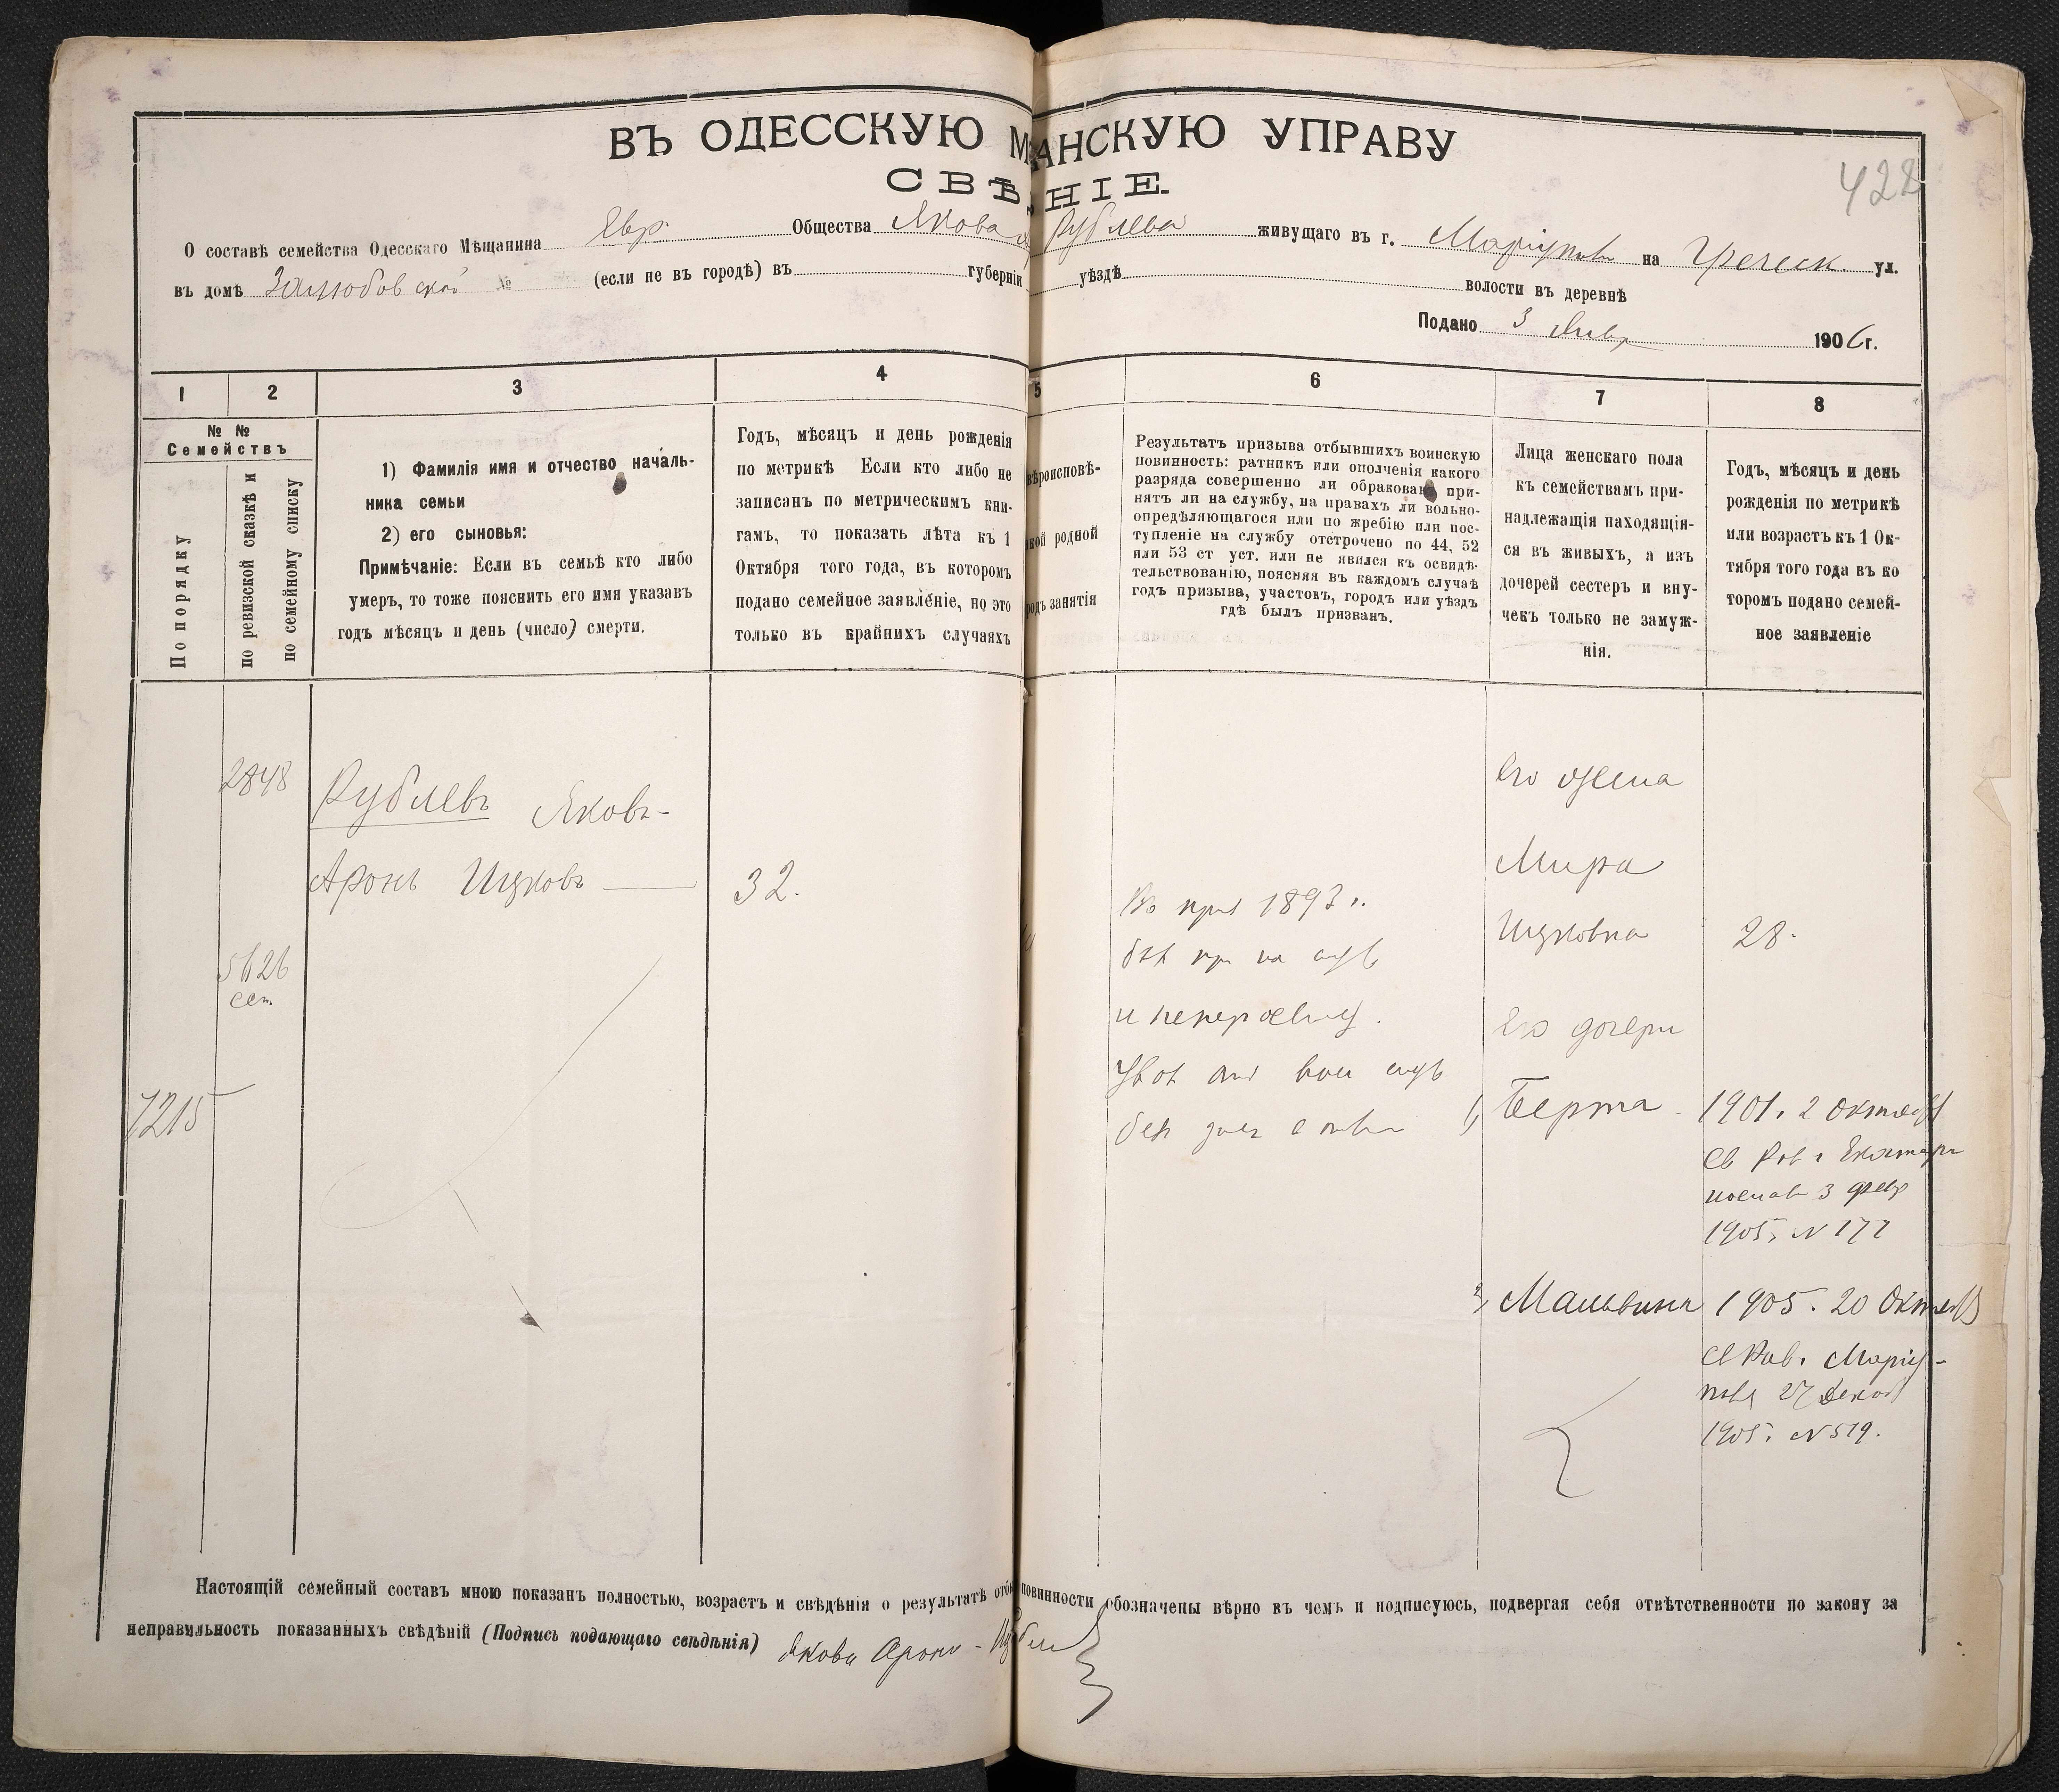 ВЪ ОДЕССКУЮ М АНСКУЮ УПРАВУ
СВѢ НІЕ
422
О составѣ семейства Одесскаго Мѣщанина Евр. Общества Якова Рублева живущаго въ г. Маріуполь на Греческ. ул.
въ домѣ № (если не въ городѣ) въ губерніи уѣздѣ волости въ деревнѣ
Подано 3 Янв 1906 г.
1 2 3 4 5 6 7 8
№ №
Семействъ
По порядку
по ревизской сказкѣ и
по семейному списку
1) Фамилія имя и отчество началь-
ника семьи
2) его сыновья:
Примѣчаніе: Если въ семьѣ кто либо
умеръ, то тоже пояснить его имя указавъ
годъ мѣсяцъ и день (число) смерти.
Годъ, мѣсяцъ и день рожденія
по метрикѣ Если кто либо не
записанъ по метрическимъ кни-
гамъ, то показать лѣта къ 1
Октября того года, въ которомъ
подано семейное заявленіе, но это
только въ крайнихъ случаяхъ
вѣроисповѣ-
кой родной
родъ занятія
Результатъ призыва отбывшихъ воинскую
повинность: ратникъ или ополченія какого
разряда совершенно ли обракованъ при-
нятъ ли на службу, на правахъ ли вольно-
опредѣляющагося или по жребію или пос-
тупленіе на службу отстрочено по 44, 52
или 53 ст уст. или не явился къ освидѣ-
тельствованію, поясняя въ каждомъ случаѣ
годъ призыва, участокъ, городъ или уѣздъ
гдѣ былъ призванъ.
Лица женскаго пола
къ семействамъ при-
надлежащія находящія-
ся въ живыхъ, а изъ
дочерей сестеръ и вну-
чекъ только не замуж-
нія.
Годъ, мѣсяцъ и день
рожденія по метрикѣ
или возрастъ къ 1 Ок-
тября того года въ ко
торомъ подано семей-
ное заявленіе
2848
Рублевъ Яковъ-
Аронъ Ицковъ
32.
5626
сем.
7215
Въ приз 1893 г.
бы пр на служ
и
Увол отъ воен служ
его жена
Мира
Ицковна
28.
Его дочери
1) Берта
1901. 2 Октяб
Св Рав г Екатери
3 февр
1905, N 177
2) Мальвина
1905. 20 Октяб
Св Рав. Маріу-
поля 27 Декаб
1905. N 519.
Настоящій семейный составъ мною показанъ полностью, возрастъ и свѣдѣнія о результатѣ отб повинности обозначены вѣрно въ чемъ и подписуюсь, подвергая себя отвѣтственности по закону за
неправильность показанныхъ свѣдѣній (Подпись подающаго свѣдѣнія) Яковъ Аронъ - Рублев